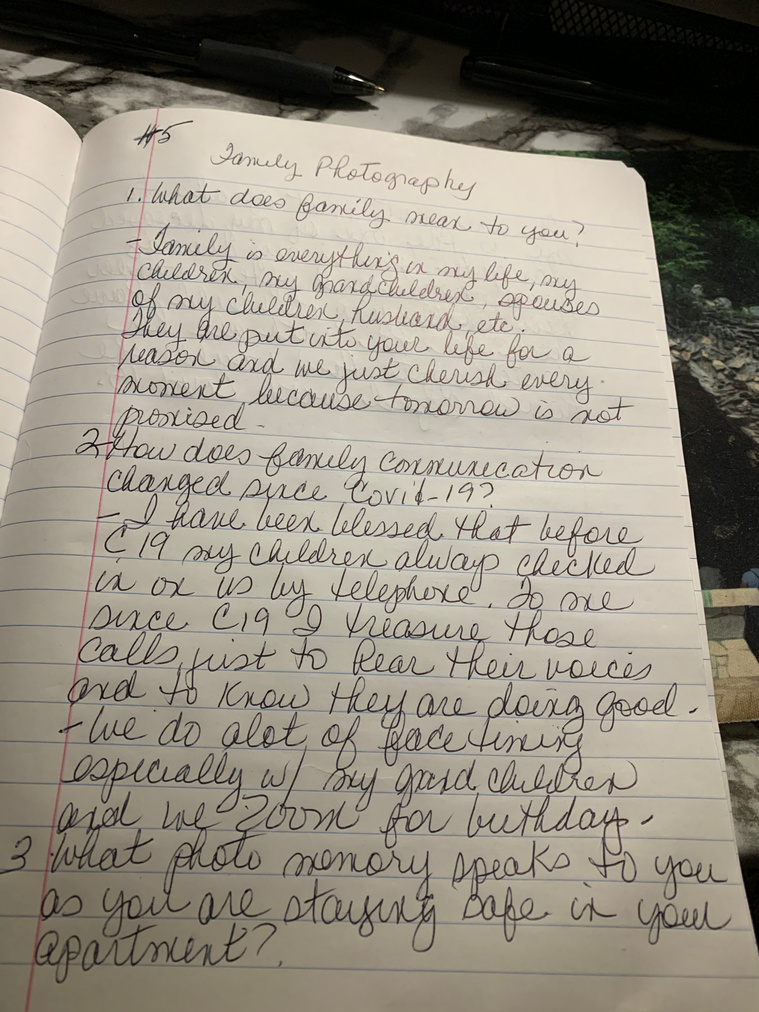 #5
Family Photography
1. What does family mean to you?
- Family is everything in my life, my
children, my grandchildren, spouses
of my children, husband, etc.
They are put into your life for a
reason and we just cherish every
moment, because tomorrow is not
promised.
2. How does family communication
changed since Covid-19?
- I have been blessed that before
C19 my children always checked
in on us by telephone. To me
since C19 I treasure those
calls, just to hear their voices
and to know they are doing good.
- We do alot of face timing
especially w/ my grandchildren
and we zoom for birthday.
3 What photo memory speaks to you
as you are staying safe in your
apartment?